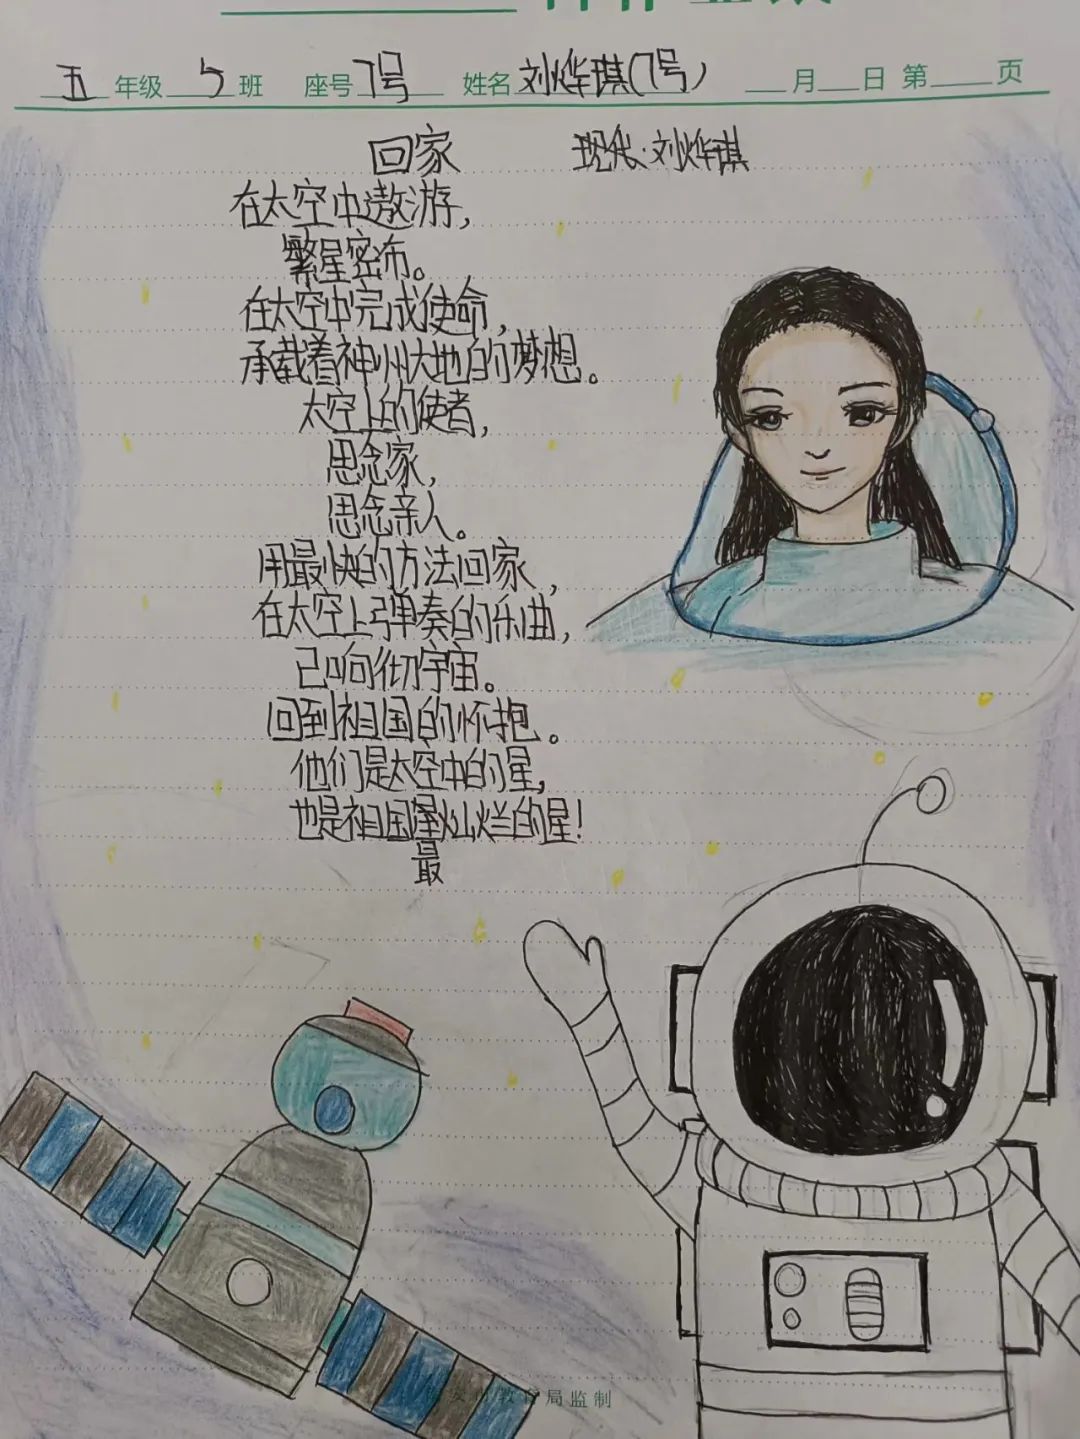 五年级 5班 座号7号 姓名刘烨琪(7号) 月 日 第 页
回家 现代:刘烨琪
在太空中遨游,
繁星密布。
在太空中完成使命,
承载着神州大地的梦想。
太空上的使者,
思念家,
思念亲人。
用最快的方法回家,
在太空上弹奏的乐曲,
已响彻宇宙。
回到祖国的怀抱。
他们是太空中的星,
也是祖国最灿烂的星!
最
教育局监制